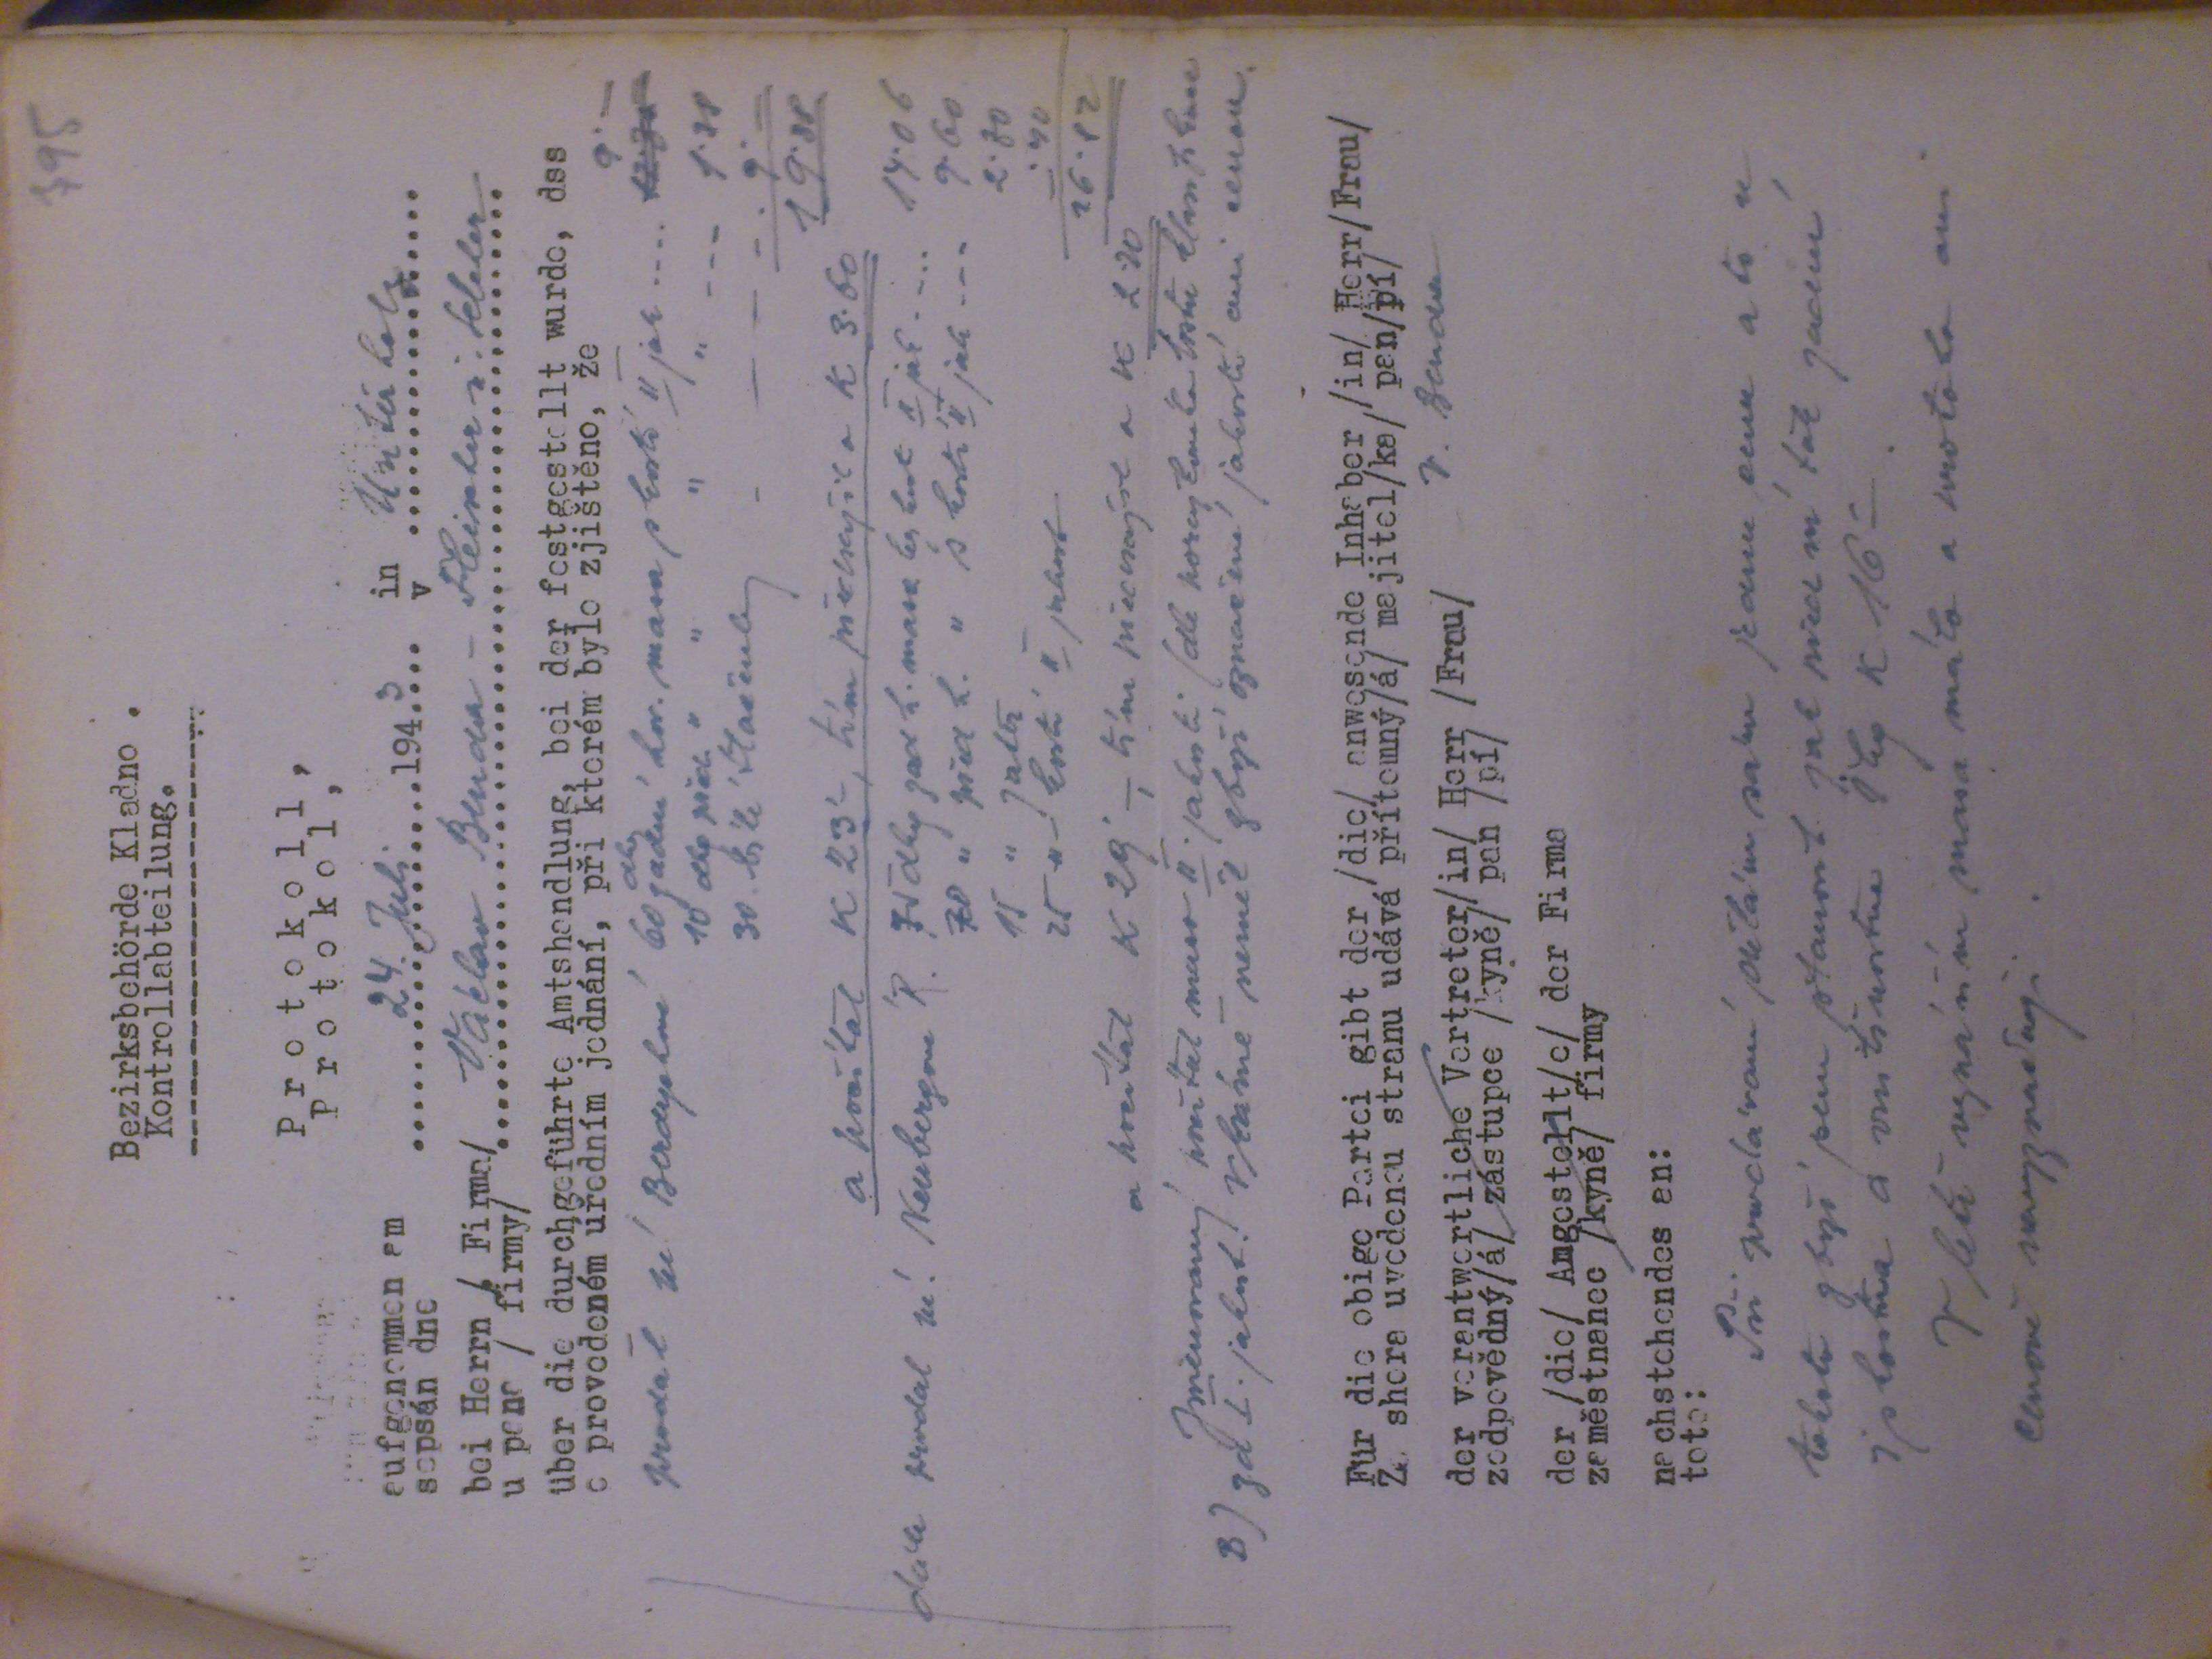 795
Bezirksbehörde Kladno .
Kontrollabteilung.
Protokoll,
Protokol,
aufgenommen am 24. Juli 1943 in Unterholz
sepsán dne v
bei Herrn / Firma/ Václav Benda - Fleischer u. Selcher
u pana / firmy/
über die durchgeführte Amtshandlung, bei der festgestellt wurde, dss
o provedeném úředním jednání, při kterém bylo zjištěno, že
9·—
prodal pí Berdychové 60 dkg zadní hov. masa s kostí II jak ....
10 dkg před. " " " " --- 1·38
30 bílé tlačenky - — — - - . 9·—
19·38
a počítal K 23·-, tím předražil o K 3·60
dále prodal pí. Neubergove R. 75 dkg zad h. masa bez kosti II jak .... 14·06
70 " před h. " s kostí II jak --- 9·60
15 " jater 2·70
25 -"- kostí II jakost -·40
26·82
a počítal K 29·—, tím předražil o K 2·20
Jmenovaný počítal maso II. jakosti (dle klasifikace
B) za I. jakost. V krámě neměl zboží označené jakostí ani cenou.
Für die obige Partei gibt der /die/ anwesende Inhaber /in/ Herr/Frau/
Za shora uvedenou stranu udává přítomný/á/ majitel/ka/ pan/pí/
V. Benda
der verantwortliche Vertreter/in/ Herr /Frau/
zodpovědný/á/ zástupce /kyně/ pan /pí/
der /die/ Angestellt/e/ der Firma
zaměstnanec /kyně/ firmy
nachstehendes an:
toto:
Při prodávaní dělám sám jednu cenu a to u
tohoto zboží jsem stanovil jak před ní tak zadní
i s kostma a vnitřnostma 1 kg K 16·—.
V létě masa málo a protoho ani
cenově nevyznačuji .